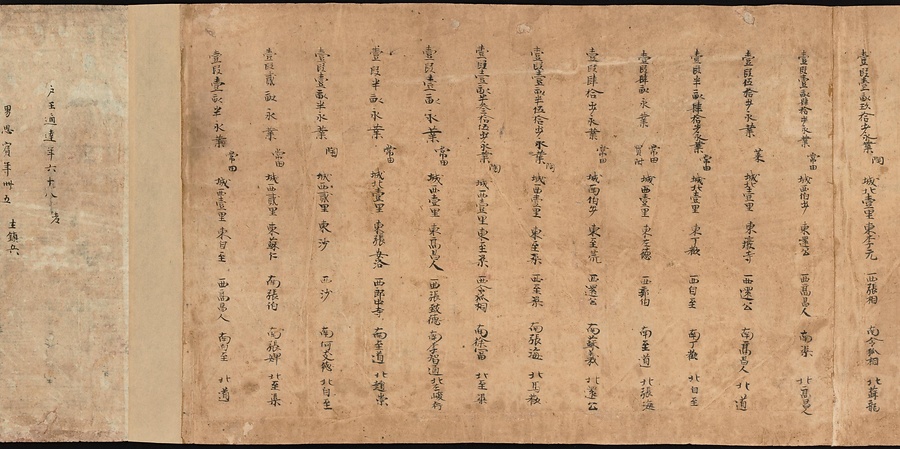 壹段壹畝玖拾步永業陶 城北壹里 東李元 西張相 南令狐相 北蘇龍
壹段壹畝肆拾步永業常田 城西伯步 東還公 西高昌人 南渠 北高昌人
壹段伍拾步永業菜 城北壹里 東 寺 西還公 南高昌人 北道
壹段半畝肆拾步永業常田 城北壹里 東丁 西自至 南丁 北自至
壹段肆畝永業常田買附 城西壹里 東左德 西 伯 南至道 北張海
壹段肆拾步永業常田 城南伯步 東至荒 西還公 南蘇義 北還公
壹段壹畝半伍拾步永業陶 城西壹里 東至渠 西至渠 南張海 北
壹段壹畝半叁拾伍步永業陶 城西壹里 東至渠 西令狐相 南徐富 北至渠
壹段壹畝永業常田 城西壹里 東高昌人 西張致德 南李 道 北
壹段半畝永業常田 城北壹里 東張安洛 西郎中寺 南至道 北趙
壹段壹畝半永業陶 城西貳里 東沙 西沙 南何 北自至
壹段貳畝永業常田 城西貳里 東蘇仁 南張伯 南張 北至渠
壹段壹畝半永業常田 城西壹里 東自至 西高昌人 南自至 北道
戶主通達年六十八 老
男思賓年卅五 主鎮兵